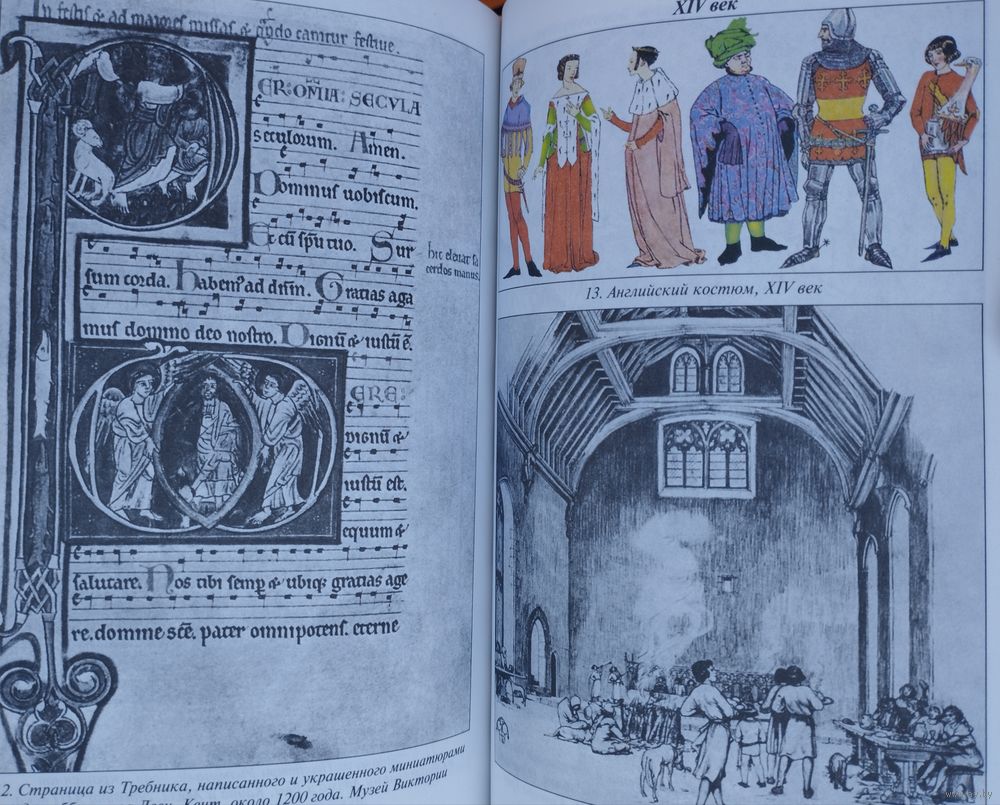 festis & ad maiores missas & qn̄do cantitur festiue.
PER: OM̄IA: SECVLA
seculorum. Amen.
Dominus uobiscum.
Et cū sp̄u tuo. Sur
sum corda. Habem' ad dn̄m. Gratias aga
mus domino deo nostro. Dignū & iustū ē.
hic eleuat sa
cerdos manus.
ERE:
dignū &
iustū est.
equum &
salutare. Nos tibi semp̱ & ubiq; gratias age
re. domine sc̄e. pater omnipotens. eterne
2. Страница из Требника, написанного и украшенного миниатюрами
Кент, около 1200 года. Музей Виктории
XIV век
13. Английский костюм, XIV век